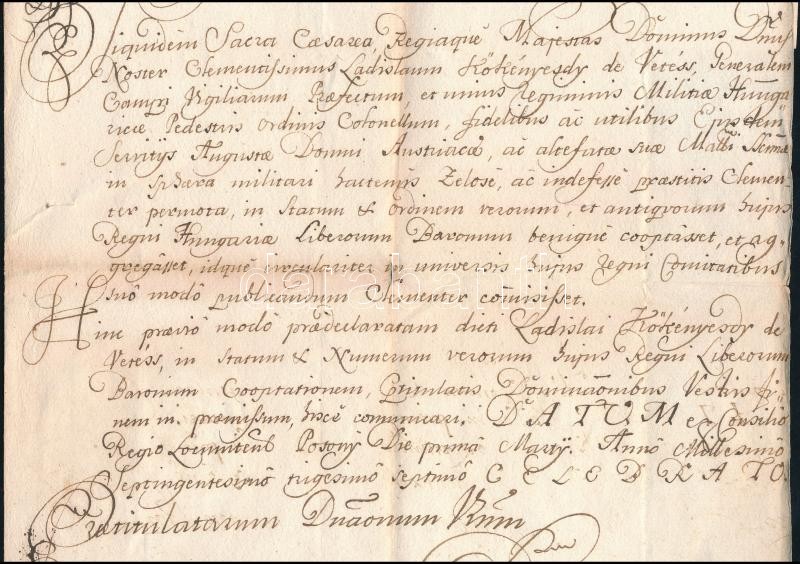 Siquidem Sacra Cæsarea, Regiaquè Majestas Dominus Dnus
Noster Clementissimus Ladislaum Kökényesdy de Vetéss, Generalem
Campi Vigiliarum Præfectum, et unius Regiminis Militiæ Hunga
ricæ Pedestris Ordinis Colonellum, fidelibus ac utilibus Ejusdem
Servitys Augustæ Domui Austriacæ, ac altefatæ suæ Matti Ssemæ
in sphæra militari hactenus Zelosè, ac indefessè præstitis Clemen-
ter permota, in Statum & Ordinem verorum, et antiquorum hujus
Regni Hungariæ Liberorum Baronum benignè cooptasset, et ag-
gregâsset, idquè circulariter in universis hujus Regni Comitatibus
suô modô publicandum Clementer com̃isisset.
Hinc præviô modô prædeclaratam dicti Ladislai Kökényesdy de
Vetéss, in Statum & Numerum verorum hujus Regni Liberorum
Baronum Cooptationem, Prætitulatis Dominaõnibus Vestris fi-
nem in præmissum, hiscè communicari. DATUM e Consilio
Regio Locumttenli Posony Die primâ Marty. Annô Millesimô
Septingentesimô trigesimô septimô CELEBRATO.
Prætitulatarum Dnaõnum Vrum
darabanth